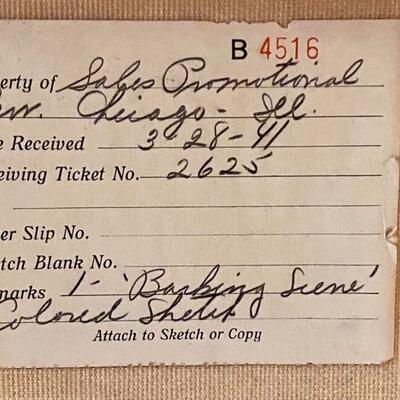 B 4516
erty of Sales Promotional
Chicago - Ill.
e Received 3-28-41
eiving Ticket No. 2625
er Slip No.
tch Blank No.
marks 1- 'Barking Scene'
Colored Sketch
Attach to Sketch or Copy